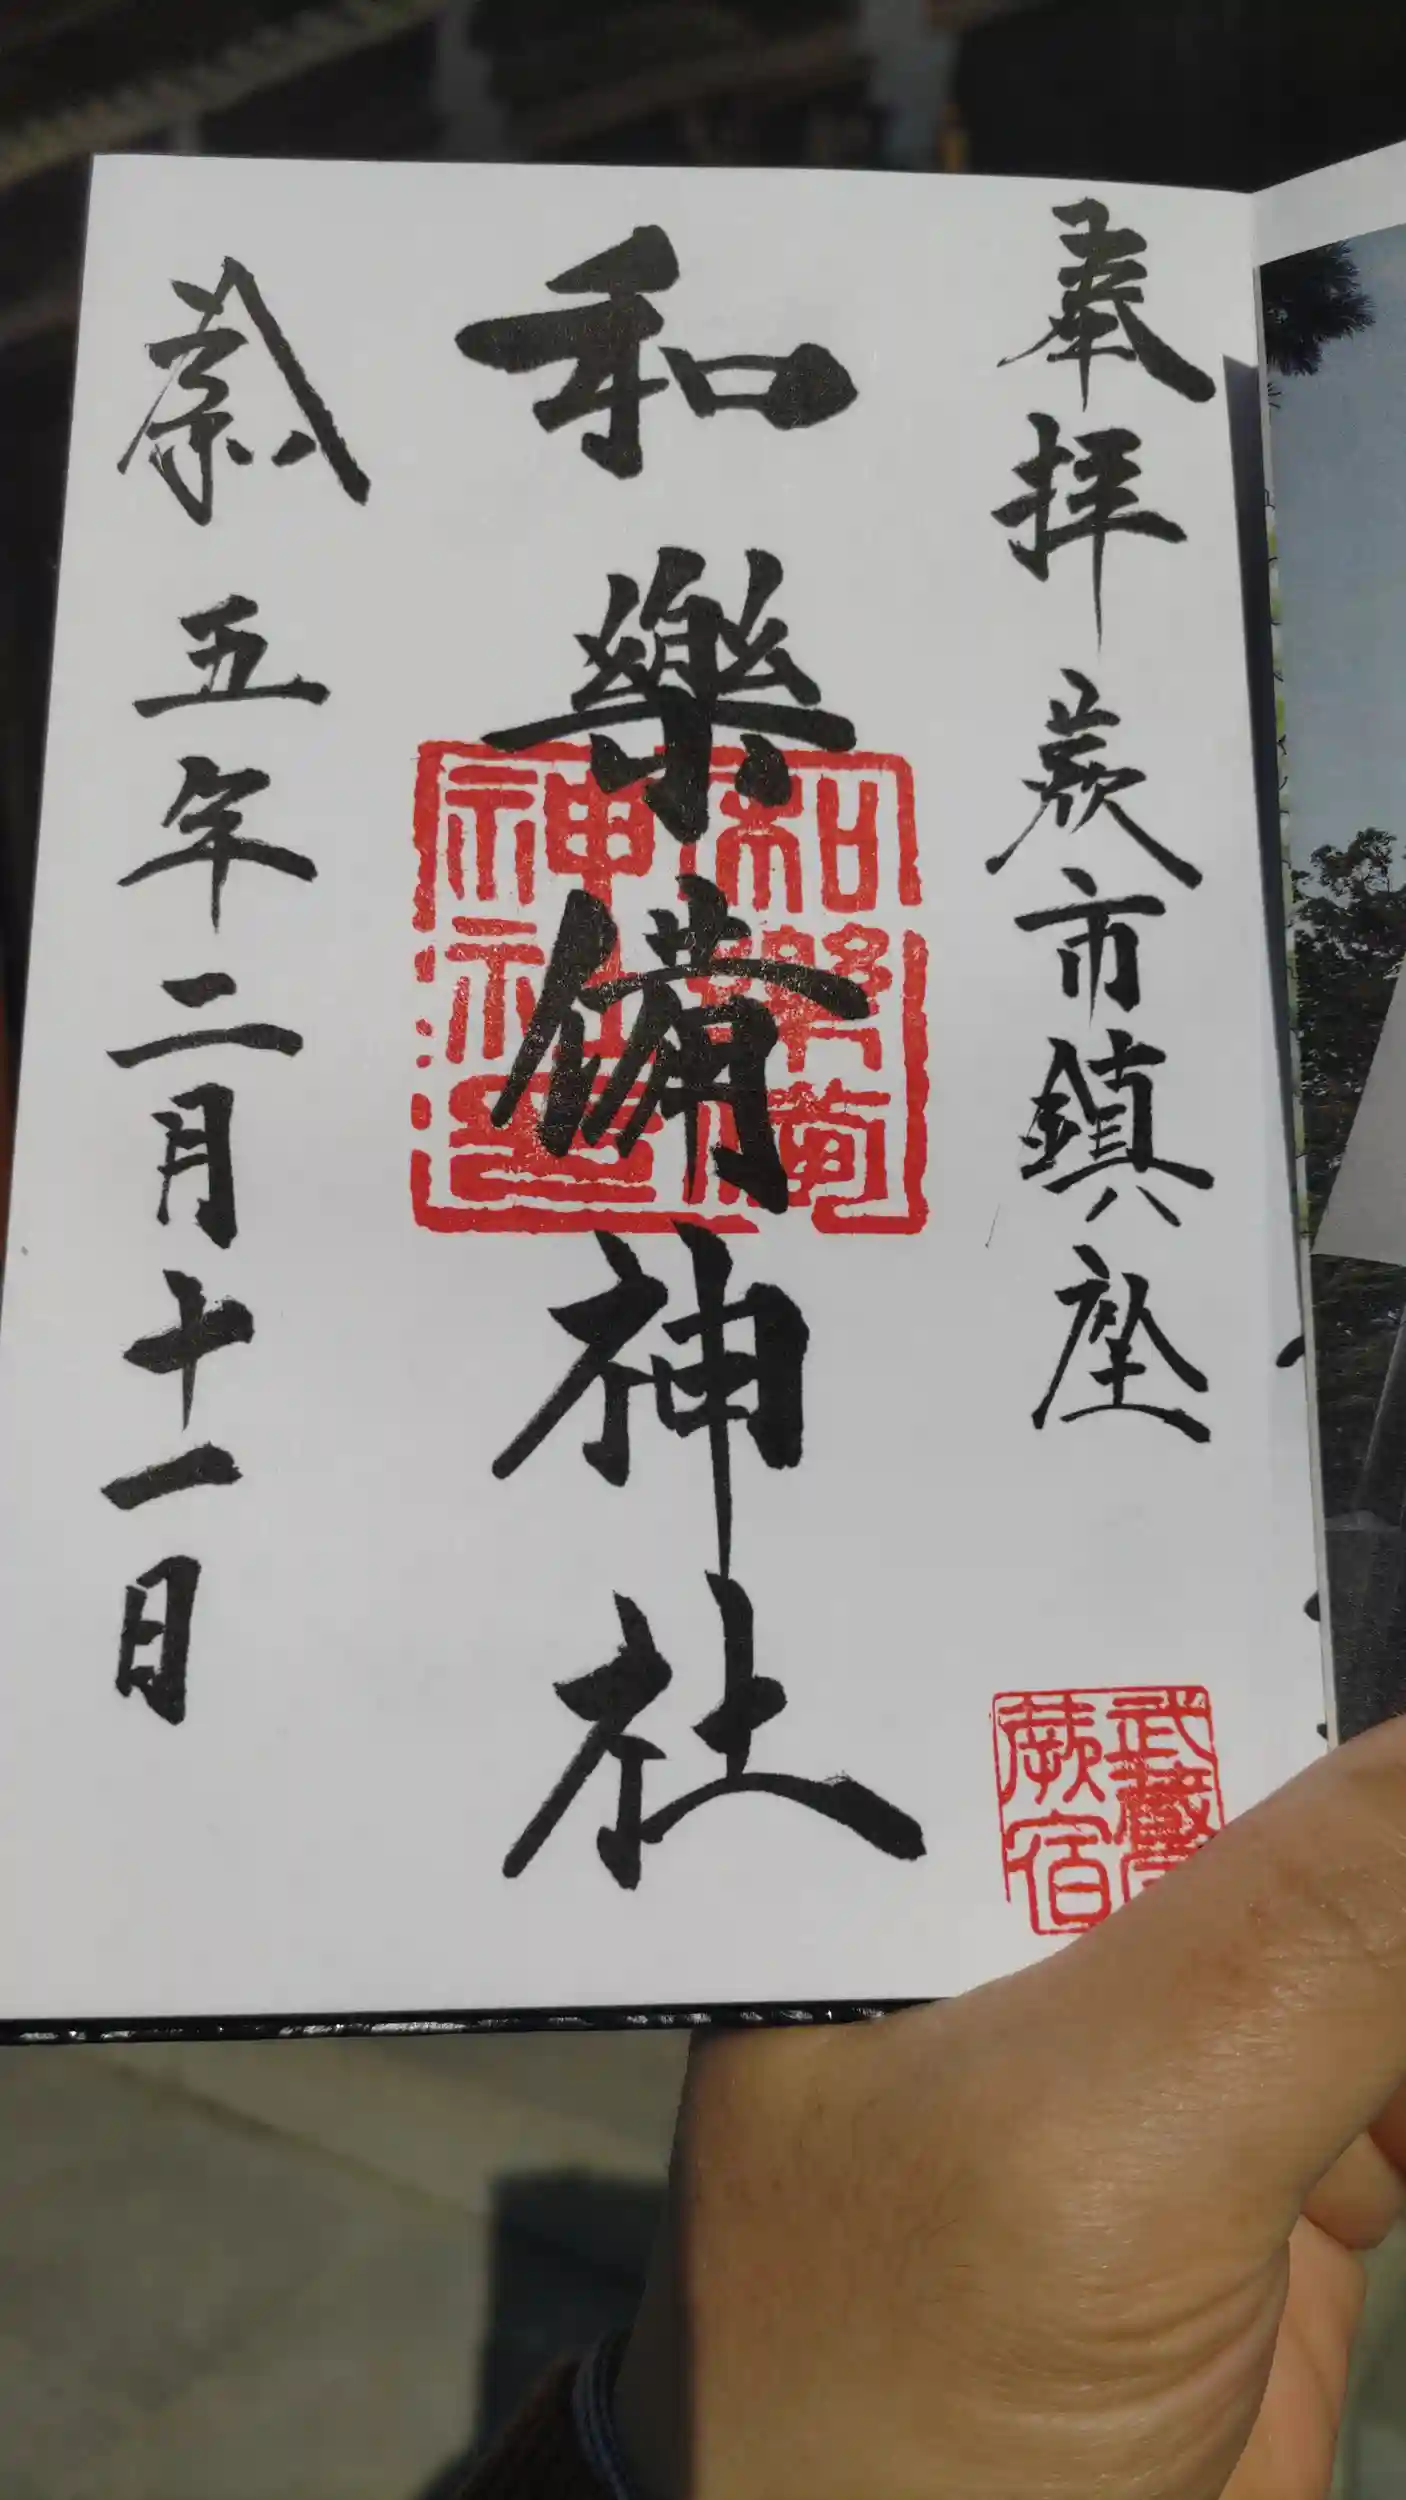 奉拝 蕨市鎮座
武蔵
蕨宿
和樂備神社
和樂備
神社印
五年二月十一日